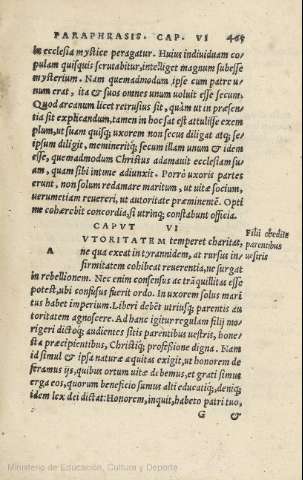 PARAPHRASIS. CAP. VI 465
in ecclesia mystice peragatur. Huius indiuiduam co-
pulam quisquis scrutabitur, intelliget magnum subesse
mysterium. Nam quemadmodum ipse cum patre u-
num erat, ita & suos omnes unum uoluit esse secum.
Quod arcanum licet retrusius sit, quàm ut in præsen-
tia sit explicandum, tamen in hoc sat est attulisse exem
plum, ut suam quisq; uxorem non secus diligat atq; se-
ipsum diligit, memineritq; secum illam unum & idem
esse, quemadmodum Christus adamauit ecclesiam su-
am, quam sibi intime adiunxit. Porrò uxoris partes
erunt, non solum redamare maritum, ut uitæ socium,
uerumetiam reuereri, ut autoritate præeminentē. Opti
me cohærebit concordia, si utrinq; constabunt officia.
CAPVT VI
A VTORITATEM temperet charitas,
ne qua exeat in tyrannidem, at rursus in-
firmitatem cohibeat reuerentia, ne surgat
in rebellionem. Nec enim consensus ac trāquillitas esse
potest, ubi confusus fuerit ordo. In uxorem solus mari
tus habet imperium. Liberi debēt utriusq; parentis au
toritatem agnoscere. Ad hanc igitur regulam filij mo-
rigeri dictoq; audientes sitis parentibus uestris, hone-
sta præcipientibus, Christiq; professione digna. Nam
id simul & ipsa naturæ æquitas exigit, ut honorem de
feramus ijs, quibus ortum uitæ debemus, et grati simus
erga eos, quorum beneficio sumus alti educatiq;, deniq;
idem lex dei dictat: Honorem, inquit, habeto patri tuo,
G &
Filij obedite
parentibus
uestris
Ministerio de Educación, Cultura y Deporte